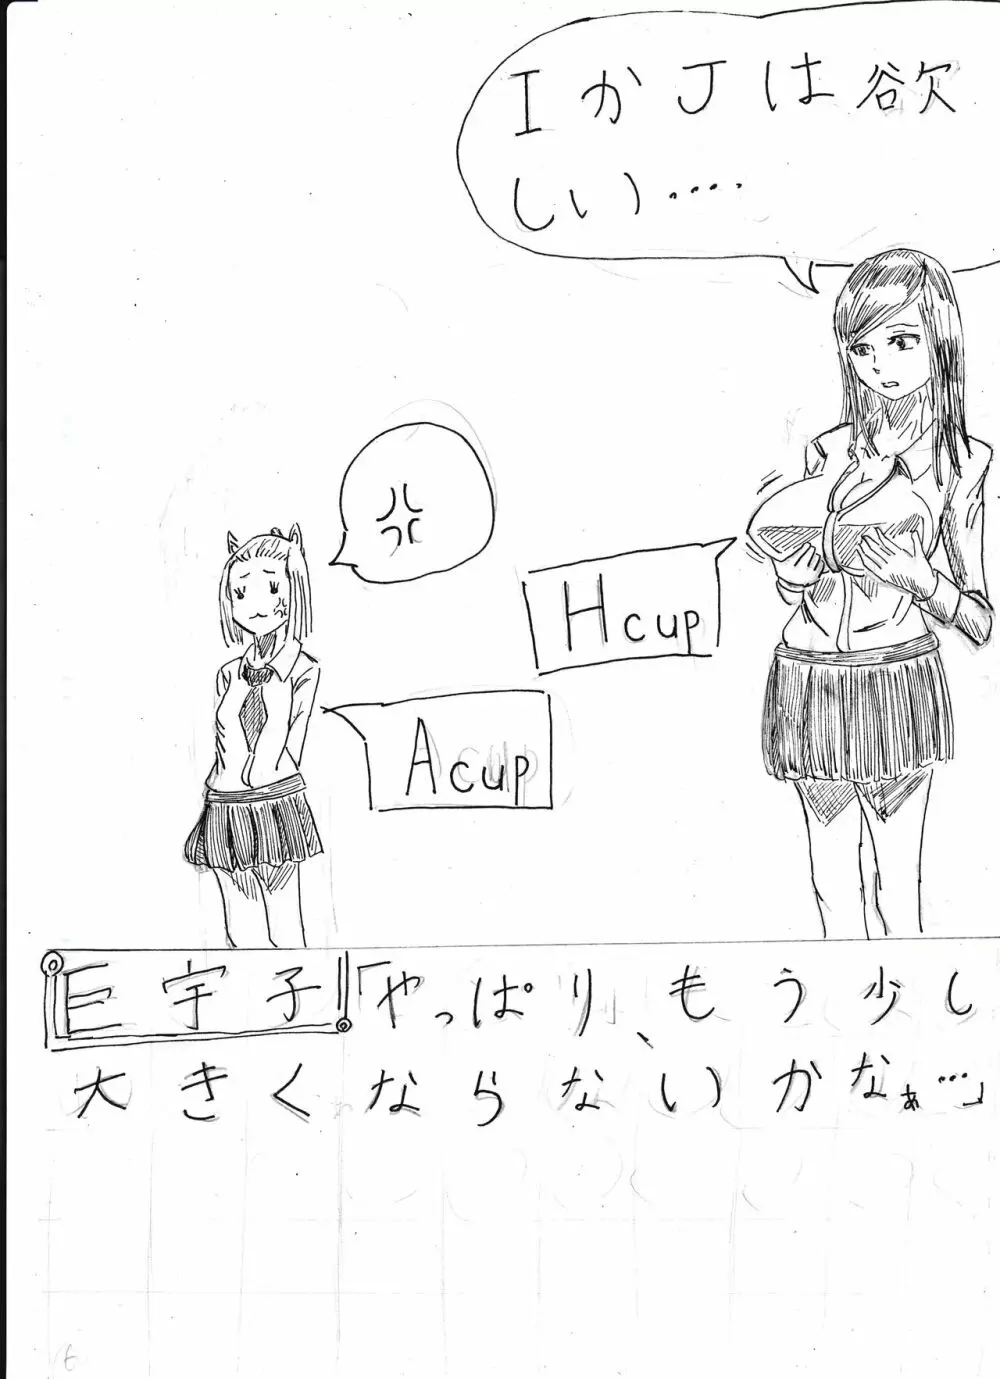 IかJは欲
しい‥‥
Hcup
Acup
巨宇子「やっぱり、もう少し
大きくならないかなぁ…」
6